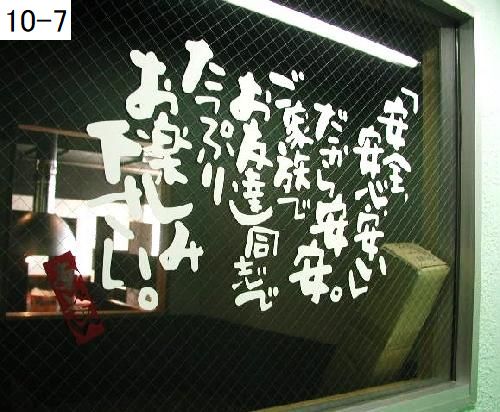 10-7
「安全、
安心、安い」
だから安安。
ご家族で
お友達同志で
たっぷり
お楽しみ
下さい。